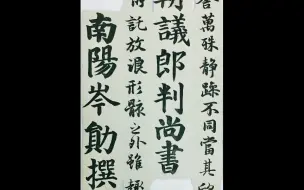 萬殊静躁不同當其
朝議郎判尚書
託放浪形骸之外雖趣
南陽岑勛撰